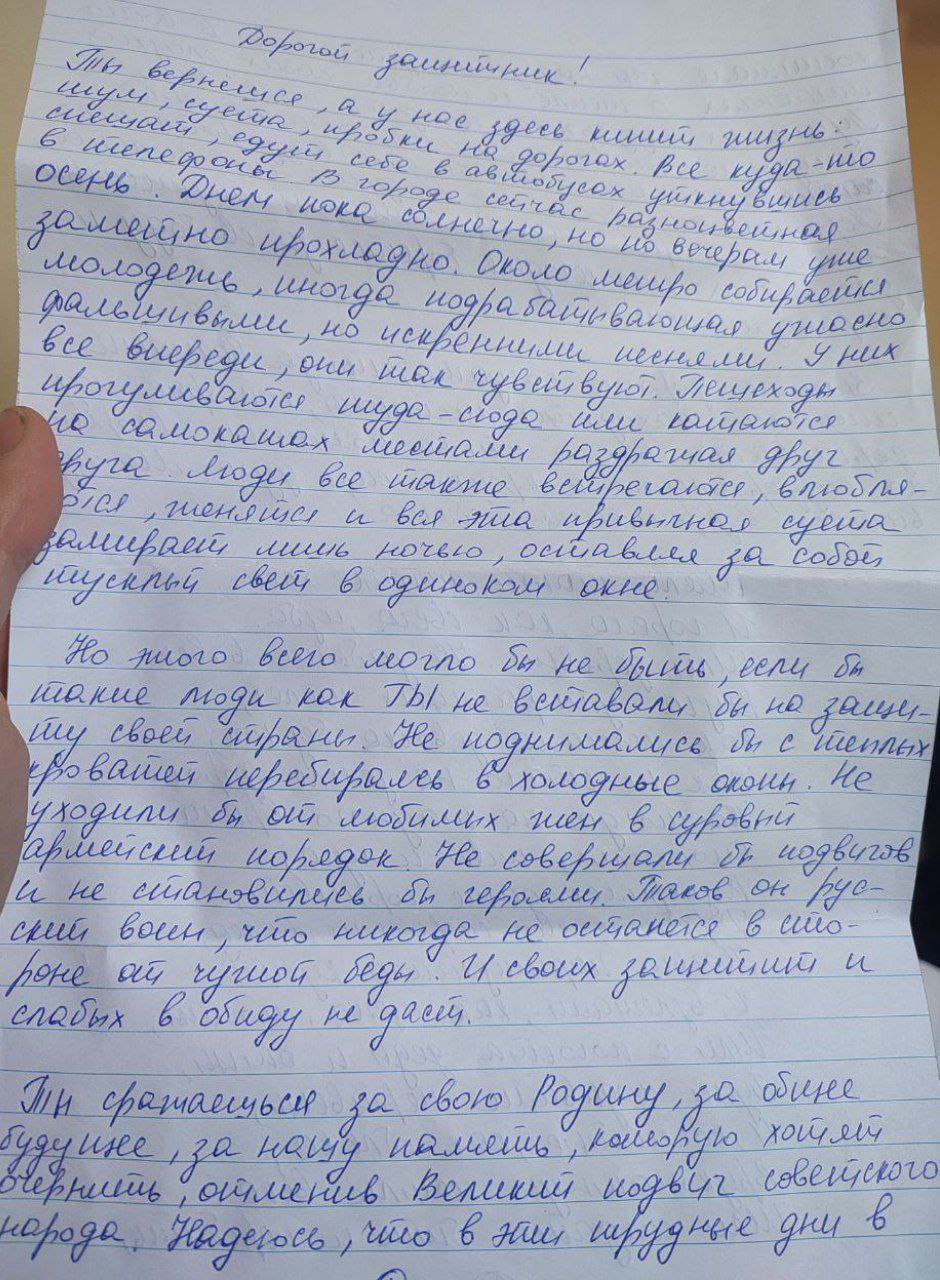 Дорогой защитник!
Ты вернешся, а у нас здесь кипит жизнь:
шум, суета, пробки на дорогах. Все куда-то
спешат, едут себе в автобусах уткнувшись
в телефоны. В городе сейчас разноцветная
осень. Днем пока солнечно, но по вечерам уже
заметно прохладно. Около метро собирается
молодежь, иногда подрабатывающая ужасно
фальшивыми, но искренними песнями. У них
все впереди, они так чувствуют. Пешеходы
прогуливаются туда-сюда или катаются
на самокатах местами раздражая друг
друга. Люди все также встречаются, влюбля-
ются, женятся и вся эта привычная суета
замирает лишь ночью, оставляя за собой
тусклый свет в одиноком окне.
Но этого всего могло бы не быть, если бы
такие люди как ТЫ не вставали бы на защи-
ту своей страны. Не поднимались бы с теплых
кроватей перебираясь в холодные окопы. Не
уходили бы от любимых жен в суровый
армейский порядок. Не совершали бы подвигов
и не становились бы героями. Таков он рус-
ский воин, что никогда не останется в сто-
роне от чужой беды. И своих защитит и
слабых в обиду не даст.
Ты сражаешься за свою Родину, за общее
будущее, за нашу память, которую хотят
очернить, отменив Великий подвиг советского
народа. Надеюсь, что в эти трудные дни в